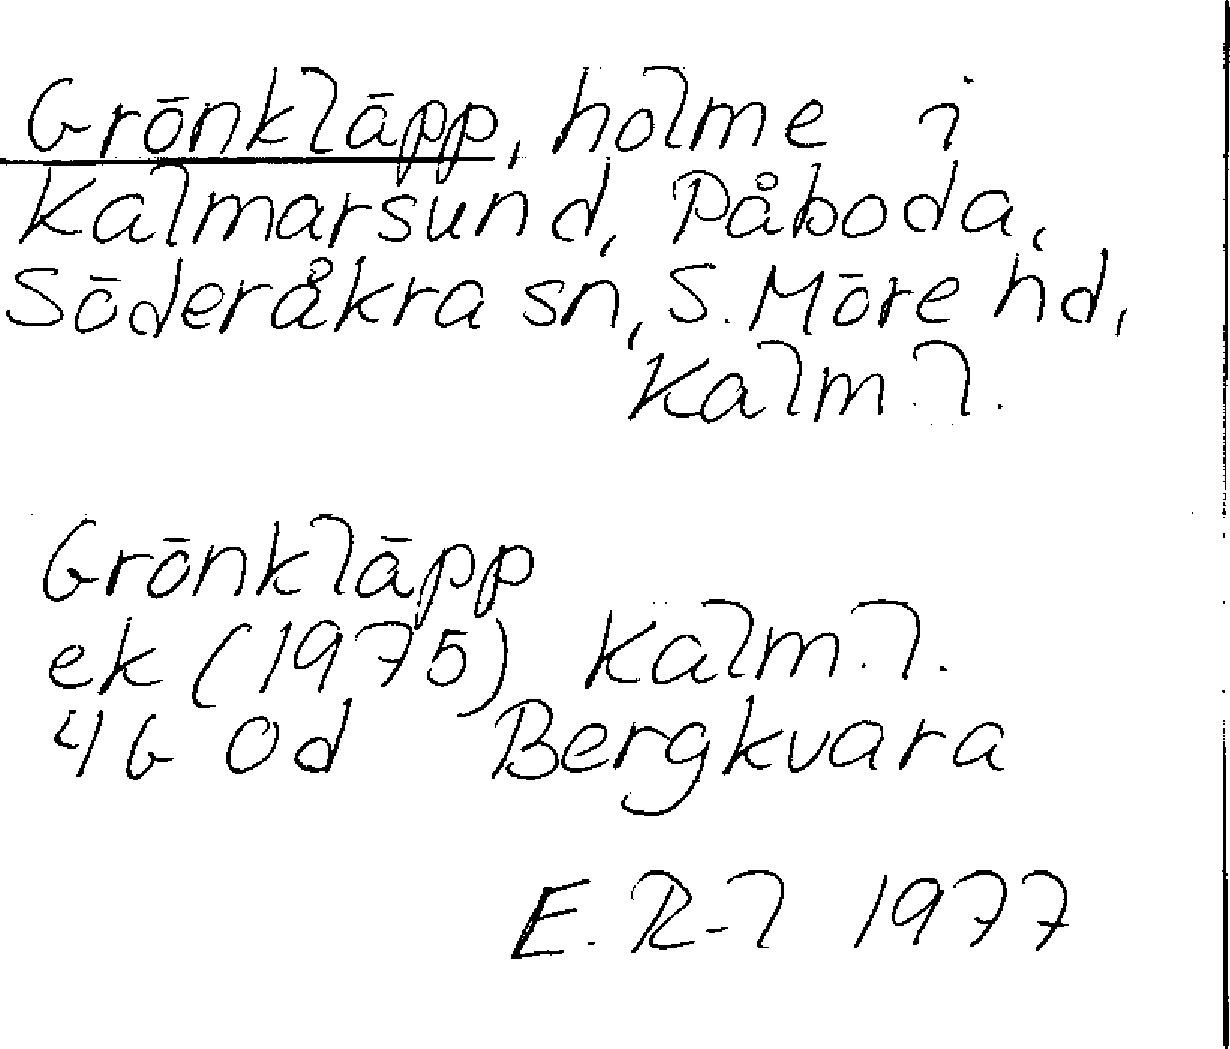 Grönkläpp, holme i
Kalmarsund, Påboda,
Söderåkra sn, S. Möre hd,
Kalm. l.
Grönkläpp
ek (1975) Kalm. l.
4G 0d Bergkvara
E. R-l 1977